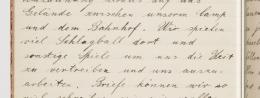 hinaus auf das
Gelände zwischen unserm Camp
und dem Bahnhof. Wir spielen
viel Schlagball dort und
sonstige Spiele um uns die Zeit
zu vertreiben und uns auszu-
arbeiten. Briefe können wir so